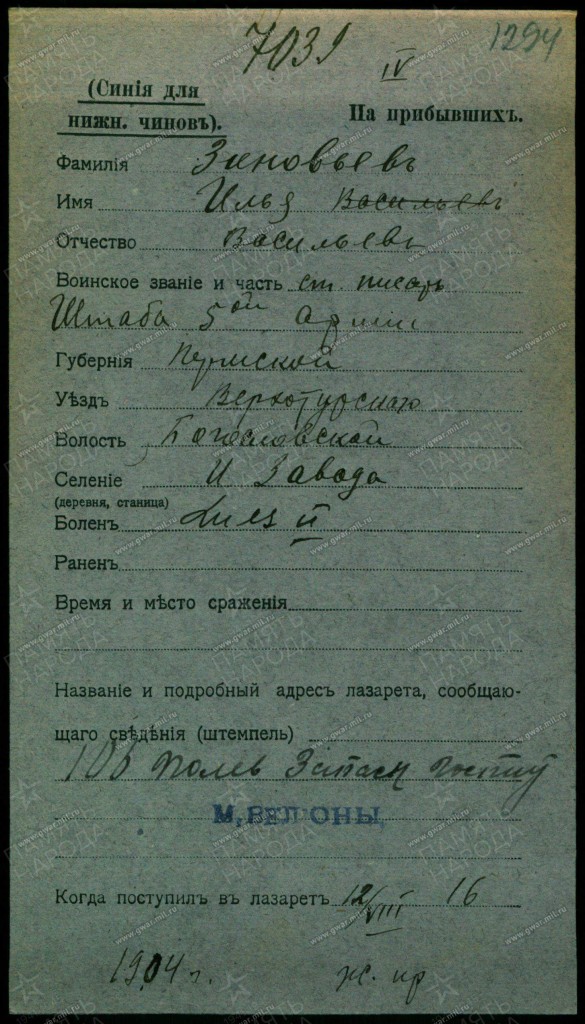 7039 1294
IV
(Синія для
нижн. чиновъ).
На прибывшихъ.
Фамилія Зиновьевъ
Имя Илья Васильевъ
Отчество Васильевъ
Воинское званіе и часть ст. писарь
Штаба 5ой Арміи
Губернія Пермской
Уѣздъ Верхотурскаго
Волость Богословской
Селеніе И Завода
(деревня, станица)
Боленъ II
Раненъ
Время и мѣсто сраженія
Названіе и подробный адресъ лазарета, сообщаю-
щаго свѣдѣнія (штемпель)
106 полев Запасн госпит
М. ВЕЛЮНЫ
Когда поступилъ въ лазаретъ 12/VIII 16
1904 г. ж. пр